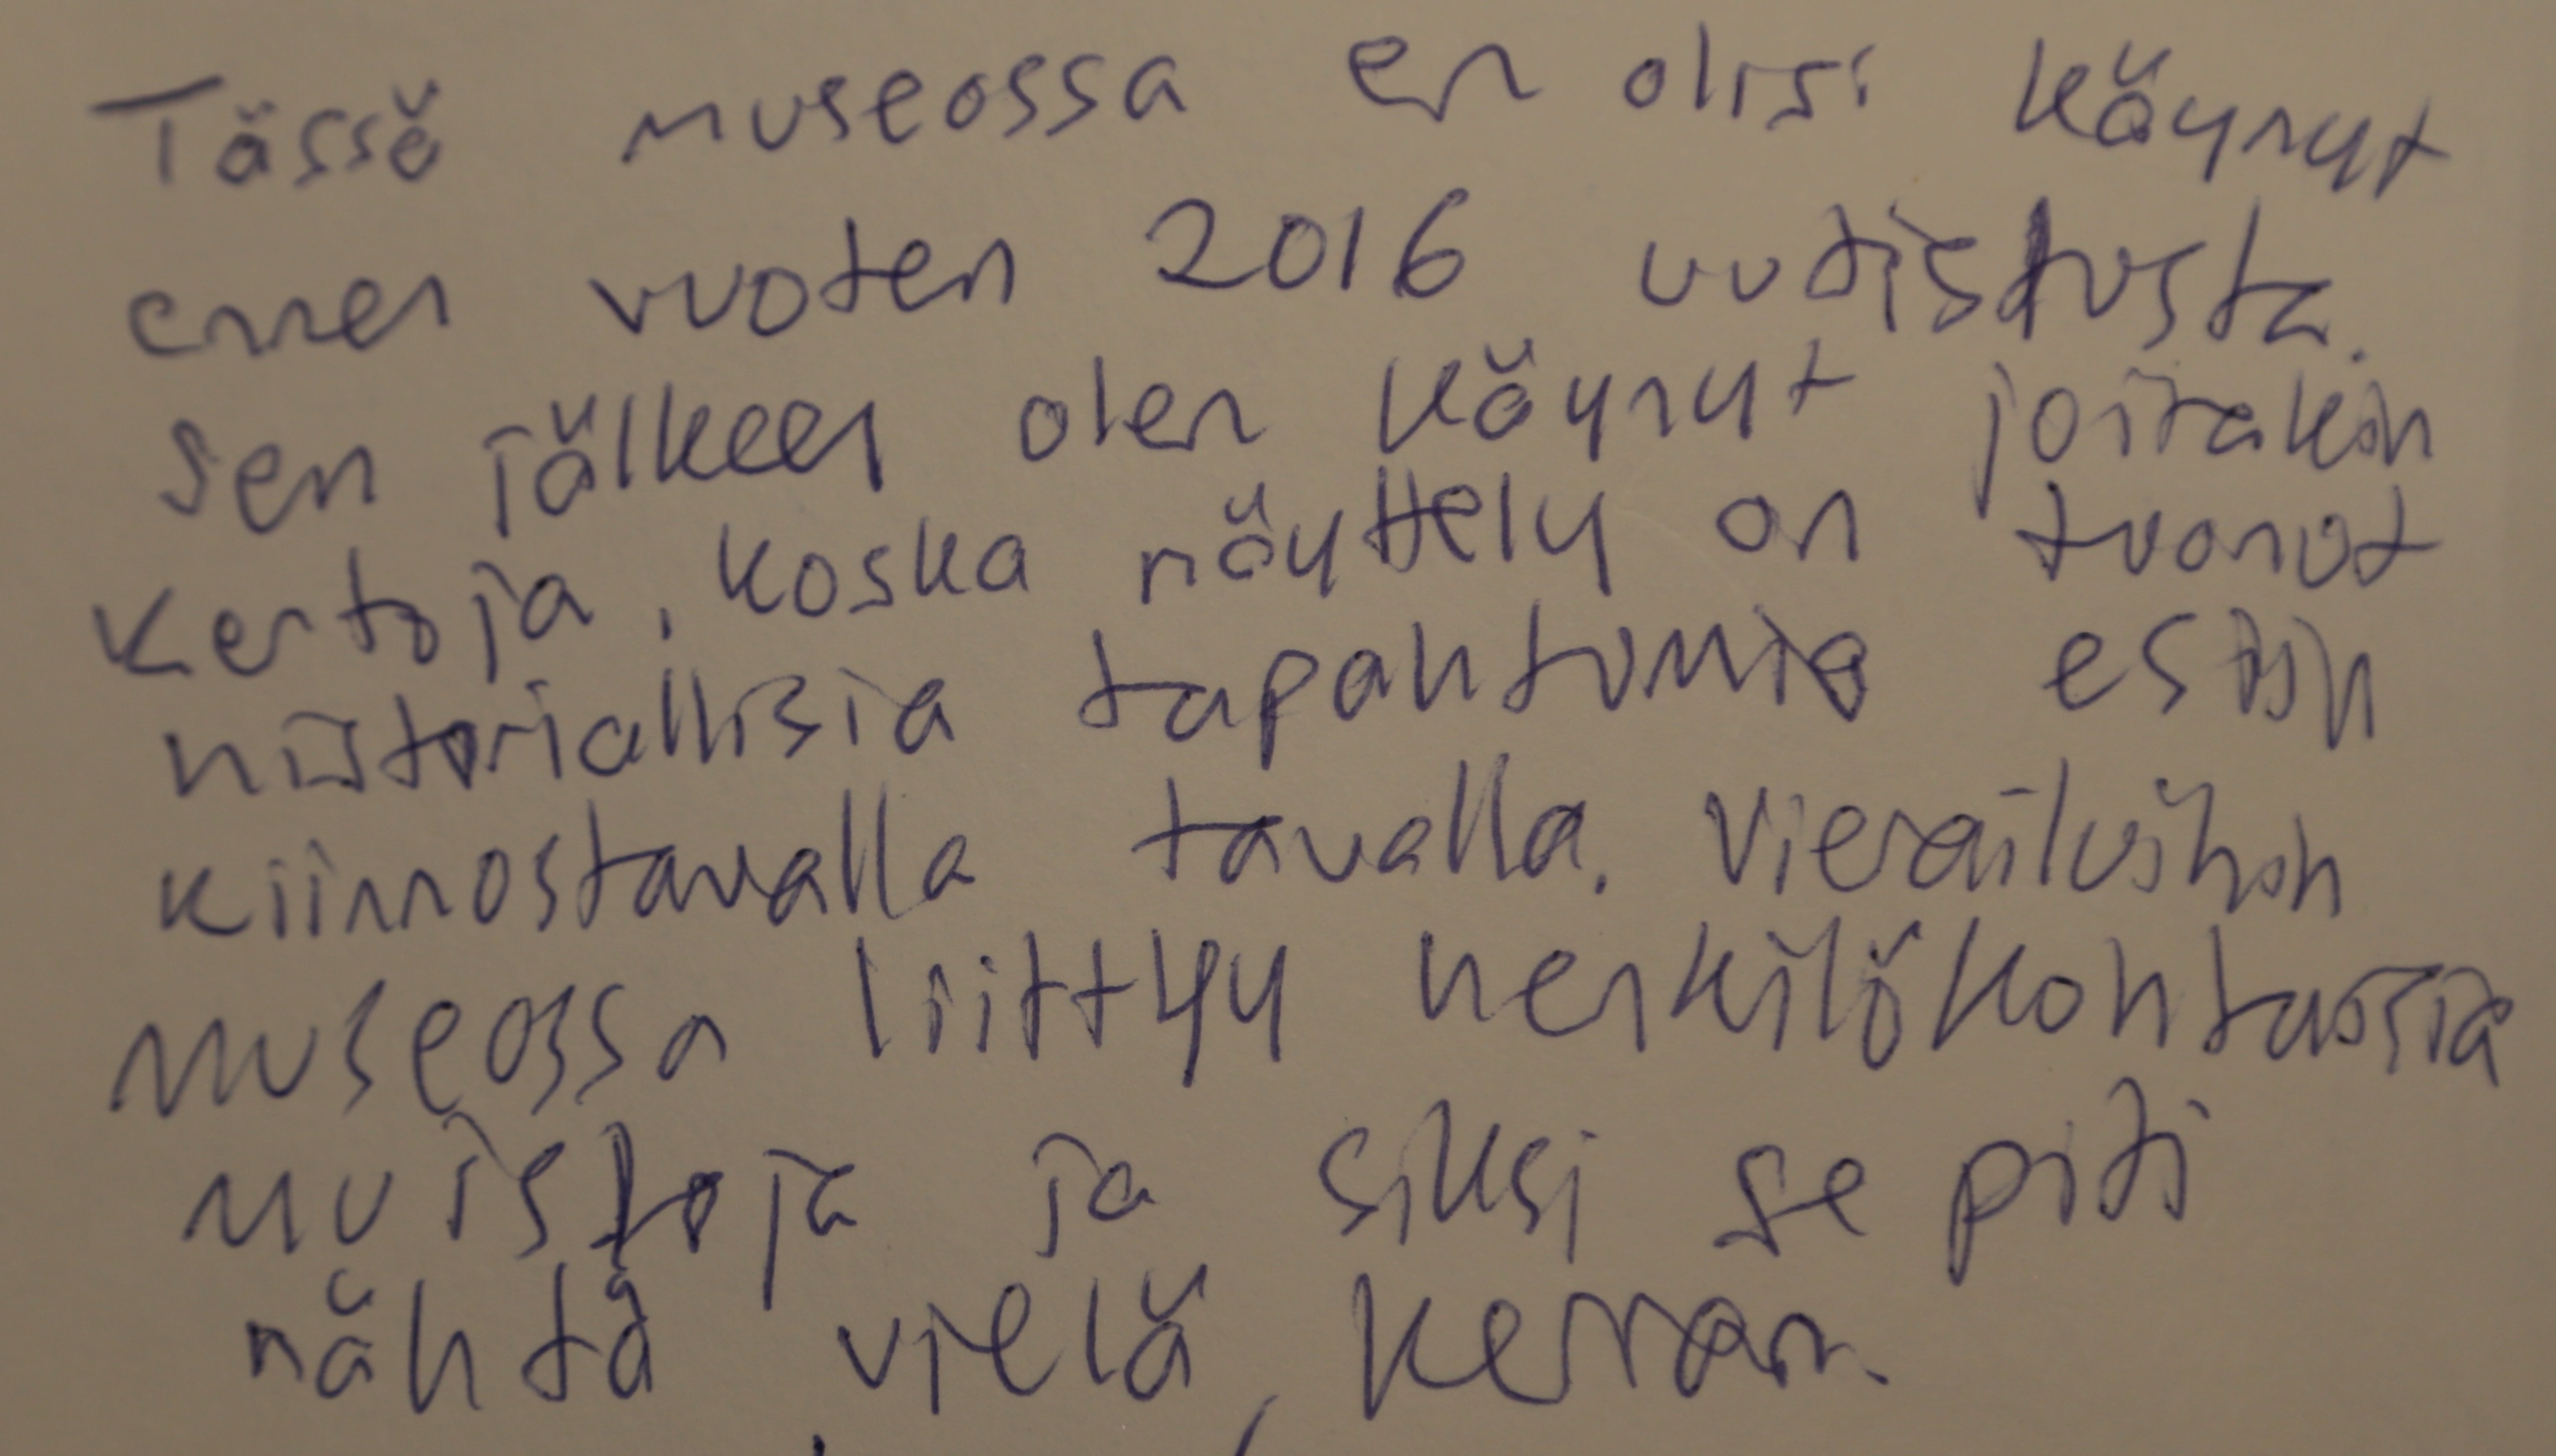 Tässä museossa en olisi käynyt
ennen vuoten 2016 uudistusta.
Sen jälkeen olen käynyt joitakin
kertoja, koska näyttely on tuonut
historiallisia tapahtumia esiin
kiinnostavalla tavalla. Vierailuihin
museossa liittyy henkilökohtaisia
muistoja ja siksi se piti
nähtä vielä kerran.